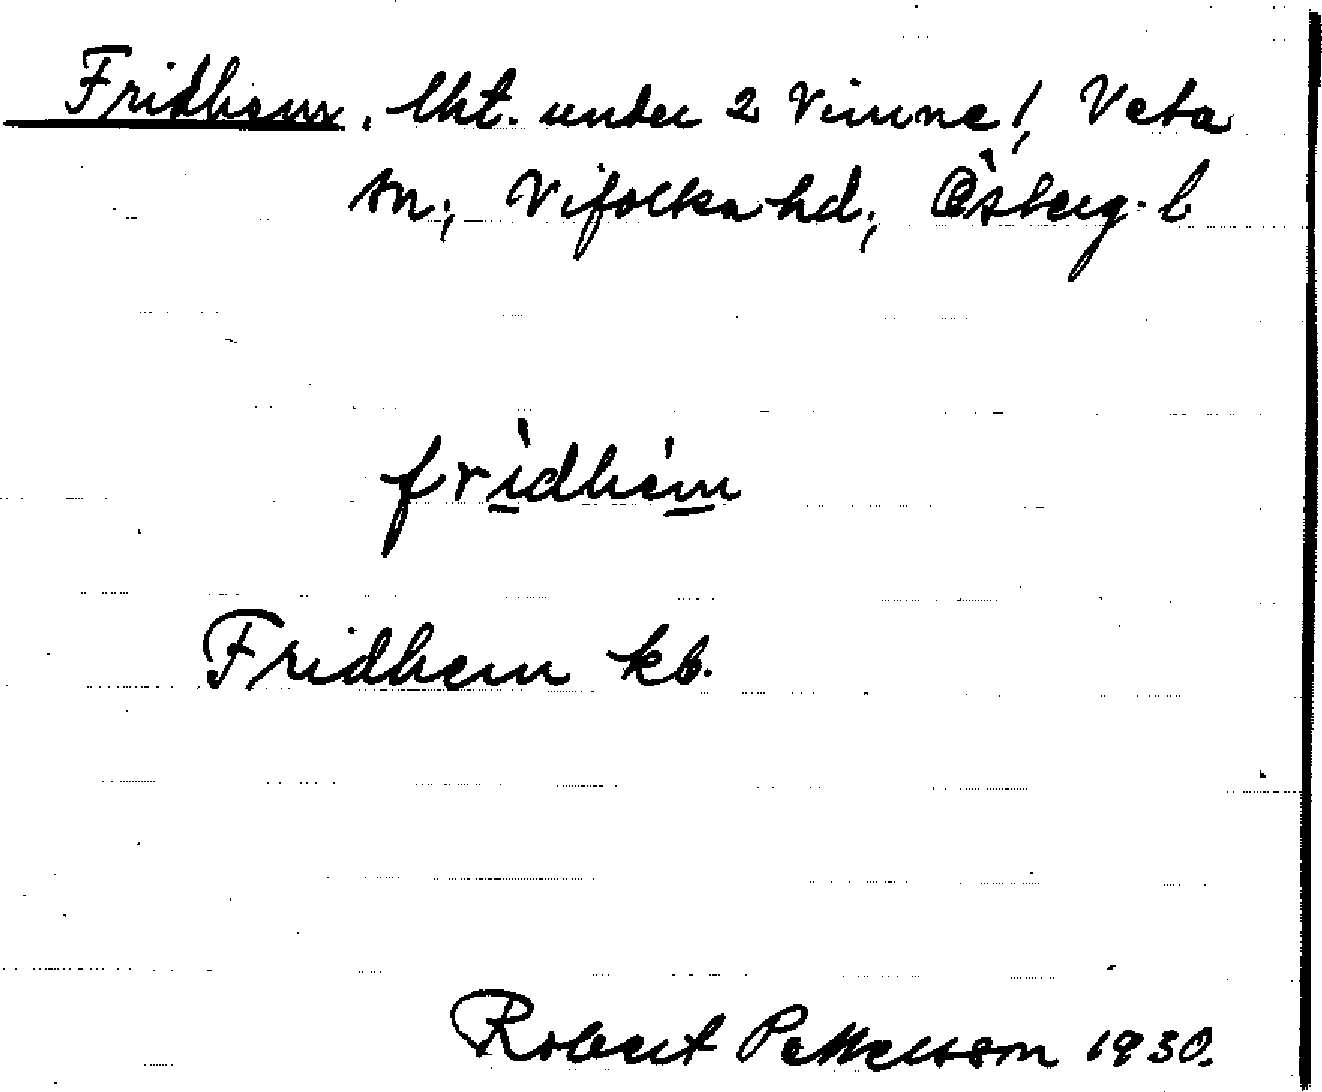 Fridhem, lht. under 2 Vimne!, Veta
sn; Vifolka hd; Österg. l
fridhèm
Fridhem kb.
Robert Pettersson 1930.